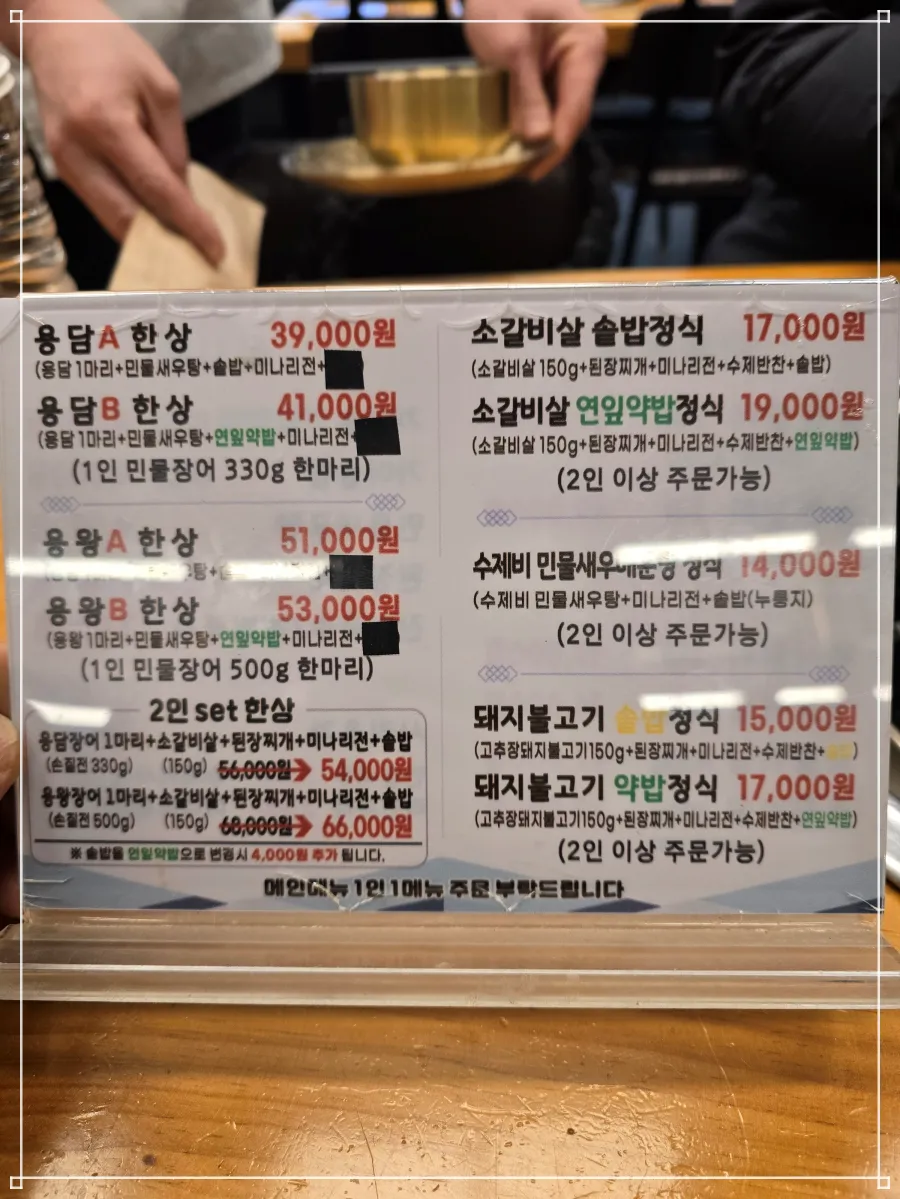 용담A 한상 39,000원
(용담 1마리+민물새우탕+솥밥+미나리전+
용담B 한상 41,000원
(용담 1마리+민물새우탕+연잎약밥+미나리전+
(1인 민물장어 330g 한마리)
용왕A 한상 51,000원
용왕B 한상 53,000원
(용왕 1마리+민물새우탕+연잎약밥+미나리전+
(1인 민물장어 500g 한마리)
2인 set 한상
용담장어 1마리+소갈비살+된장찌개+미나리전+솥밥
(손질전 330g) (150g) 56,000원 54,000원
용왕장어 1마리+소갈비살+된장찌개+미나리전+솥밥
(손질전 500g) (150g) 68,000원 66,000원
※ 솥밥을 연잎약밥으로 변경시 4,000원 추가 됩니다.
소갈비살 솥밥정식 17,000원
(소갈비살 150g+된장찌개+미나리전+수제반찬+솥밥)
소갈비살 연잎약밥정식 19,000원
(소갈비살 150g+된장찌개+미나리전+수제반찬+연잎약밥)
(2인 이상 주문가능)
수제비 민물새우매운탕 정식 14,000원
(수제비 민물새우탕+미나리전+솥밥(누룽지)
(2인 이상 주문가능)
돼지불고기 솥밥정식 15,000원
(고추장돼지불고기150g+된장찌개+미나리전+수제반찬+
돼지불고기 약밥정식 17,000원
(고추장돼지불고기150g+된장찌개+미나리전+수제반찬+연잎약밥)
(2인 이상 주문가능)
메인메뉴 1인 1메뉴 주문 부탁드립니다